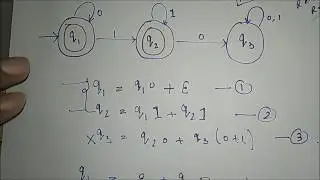 0 1 0,1
q₁ 1 q₂ 0 q₃
q₁ = q₁0 + ε — ①
q₂ = q₁1 + q₂1 — ②
x q₃ = q₂0 + q₃(0+1) — ③